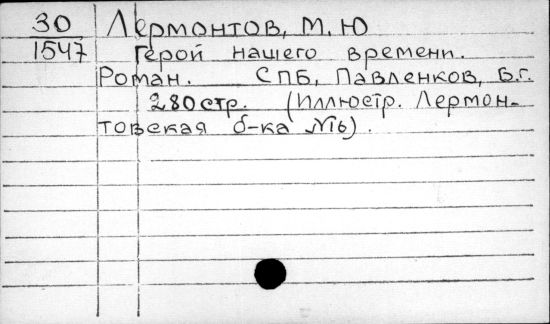 30
1547
Лермонтов, М. Ю
Герой нашего времени.
Роман. СПБ, Павленков, Б.г.
280 стр. (Иллюстр. Лермон-
товская б-ка №6).